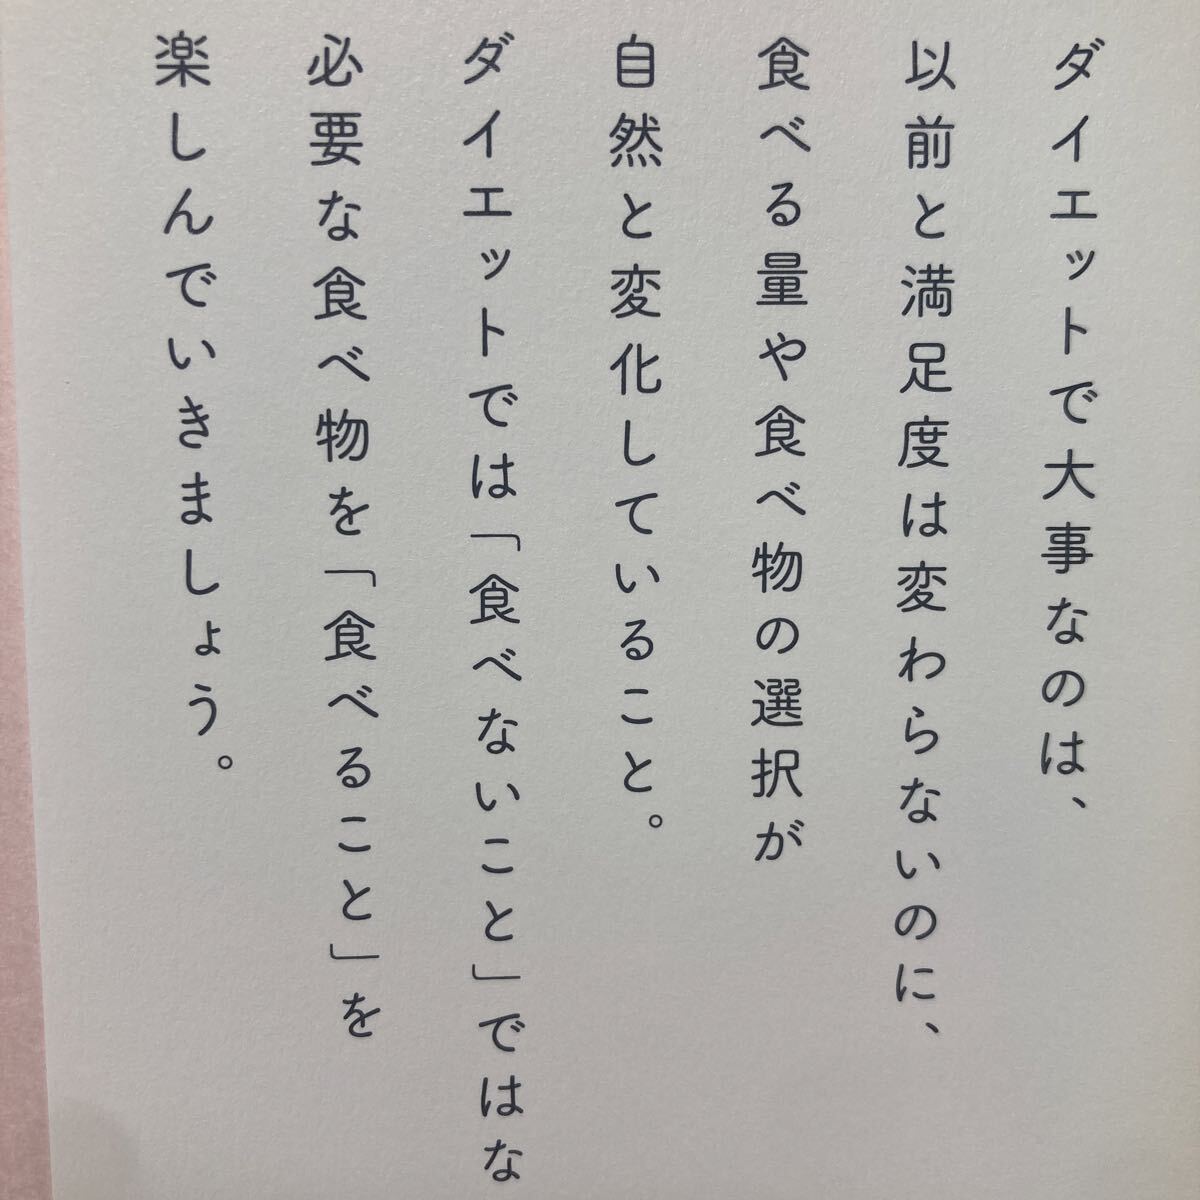 ダイエットで大事なのは、
以前と満足度は変わらないのに、
食べる量や食べ物の選択が
自然と変化していること。
ダイエットでは「食べないこと」ではな
必要な食べ物を「食べること」を
楽しんでいきましょう。